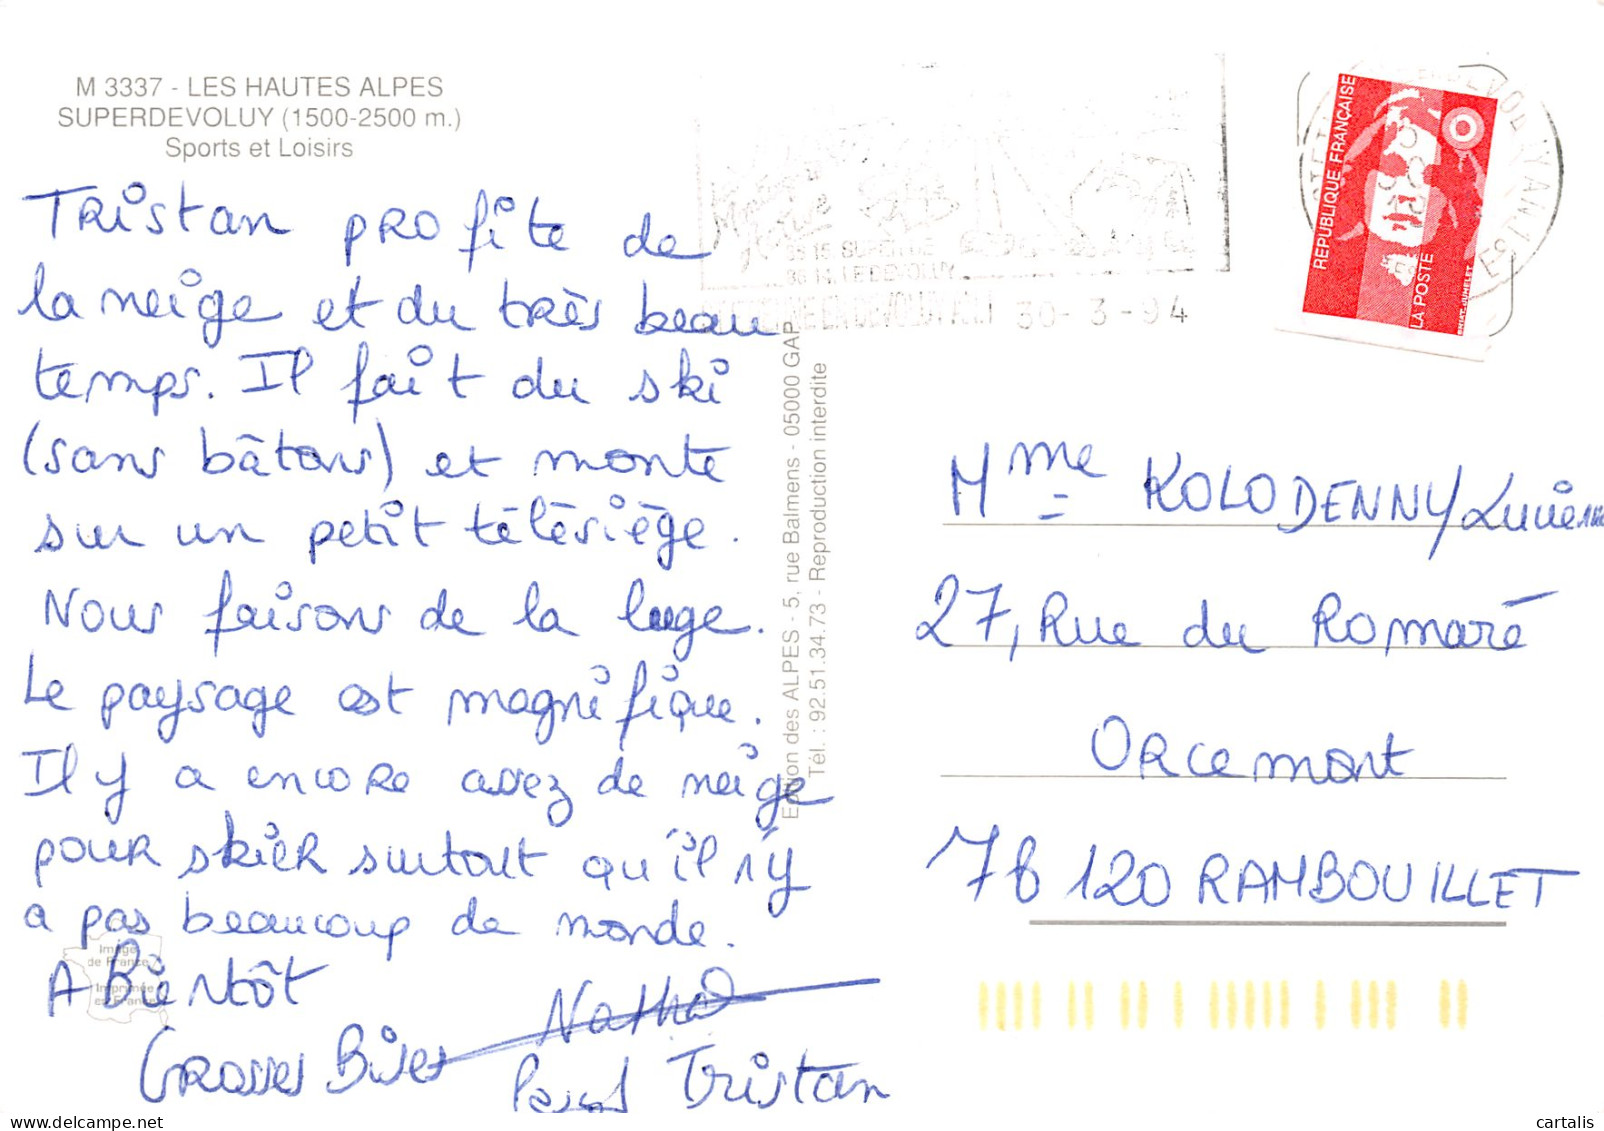 M 3337 - LES HAUTES ALPES
SUPERDEVOLUY (1500-2500 m.)
Sports et Loisirs
Tristan profite de
la neige et du très beau
temps. Il fait du ski
(sans bâtons) et monte
sur un petit télésiège.
Nous faisons de la luge.
Le paysage est magnifique.
Il y a encore assez de neige
pour skier surtout qu'il n'y
a pas beaucoup de monde.
A Bientôt
Grosses Bises
Tristan
Image
de France
Imprimée
en France
Edition des ALPES - 5, rue Balmens - 05000 GAP
Tél. : 92.51.34.73 - Reproduction interdite
36 15
36 14. LE DEVOLUY
30- 3 - 94
REPUBLIQUE FRANÇAISE
LA POSTE
Mme KOLODENNY Lucienne
27, Rue du Romaré
Orcemont
78 120 RAMBOUILLET
cartalis
delcampe.net